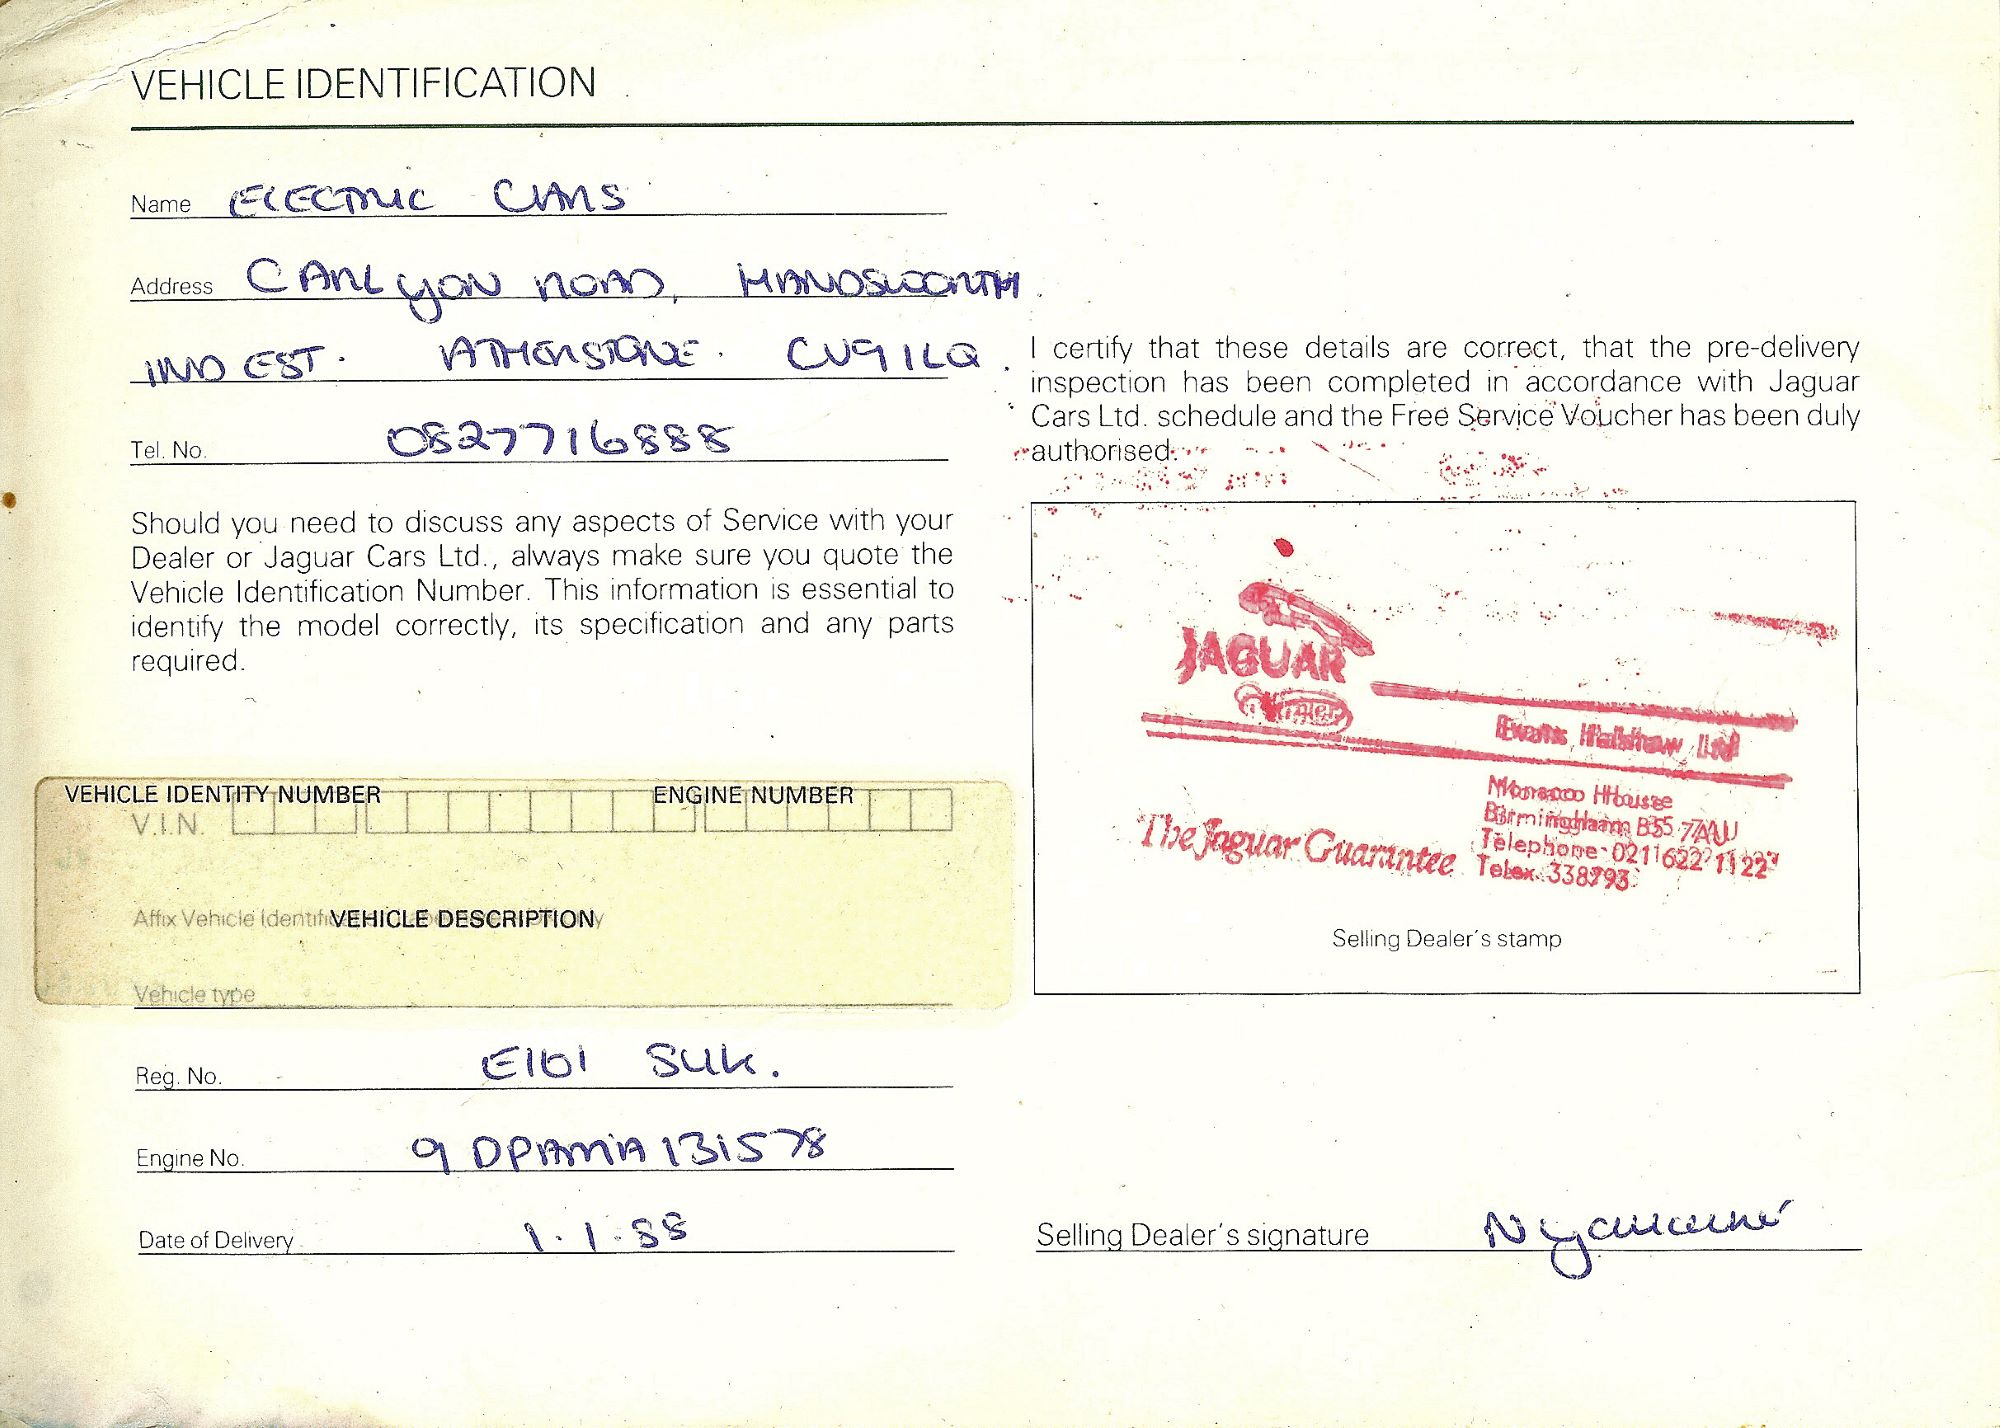 VEHICLE IDENTIFICATION
Name ELECTRIC CARS
Address CARLYON ROAD, HANDSWORTH
IND EST. ATHERSTONE. CV9 1LQ.
Tel. No. 0827716888
Should you need to discuss any aspects of Service with your
Dealer or Jaguar Cars Ltd., always make sure you quote the
Vehicle Identification Number. This information is essential to
identify the model correctly, its specification and any parts
required.
VEHICLE IDENTITY NUMBER ENGINE NUMBER
V.I.N.
Affix Vehicle
VEHICLE DESCRIPTION
Vehicle type
Reg. No. E101 SUK.
Engine No. 9 DPAMA 131578
Date of Delivery 1.1.88
I certify that these details are correct, that the pre-delivery
inspection has been completed in accordance with Jaguar
Cars Ltd. schedule and the Free Service Voucher has been duly
authorised.
JAGUAR
Evans Halshaw Ltd
Monaco House
Birmingham B5 7AU
Telephone 021 622 1122
Telex 338793
The Jaguar Guarantee
Selling Dealer's stamp
Selling Dealer's signature